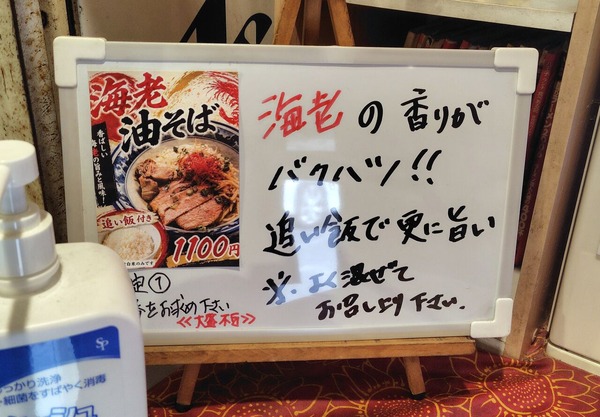 海老
油そば
香ばしい
海老の旨みと風味!
追い飯付き
1100円
海老の香りが
バクハツ!!
追い飯で更に旨い
※.よく混ぜて
お召し上り下さい.
①
をお求め下さい
≪大盛不可≫
SP
っかり洗浄
細菌をすばやく消毒